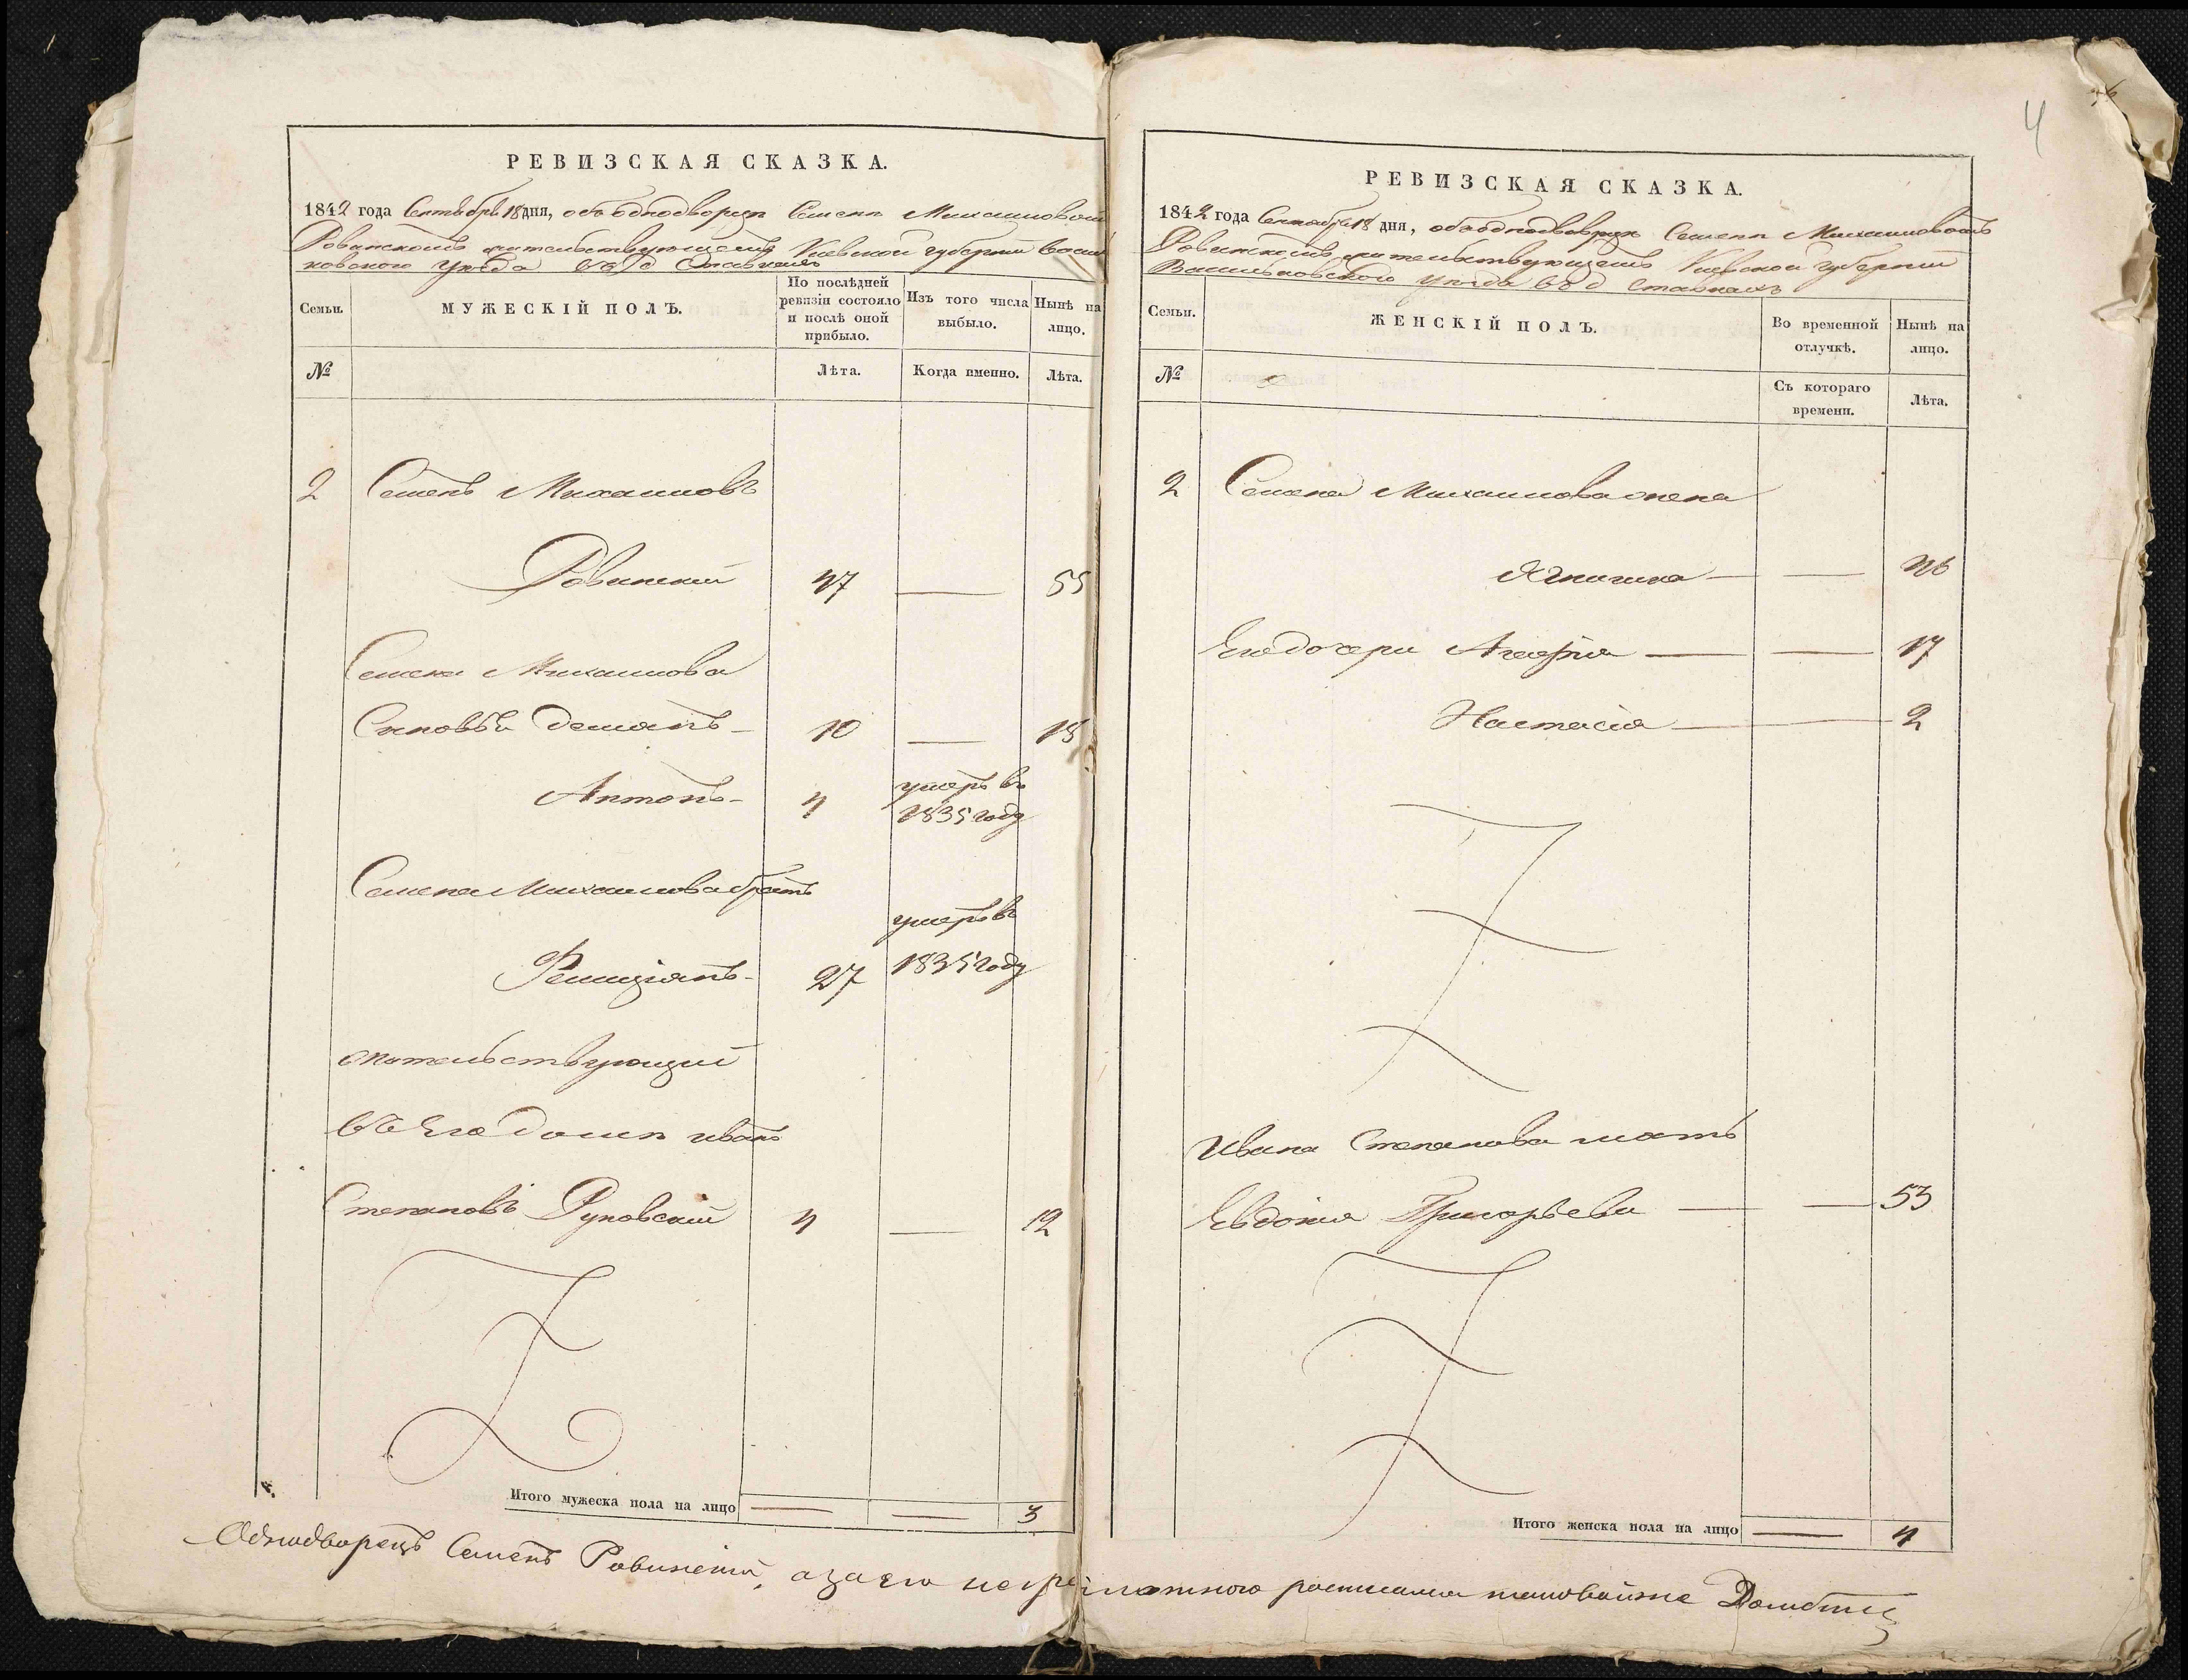 РЕВИЗСКАЯ СКАЗКА.
1842 года Сентября 18 дня, объ однодворцѣ Семенѣ Михаиловомъ
Ровинскомъ жительствующемъ Киевской губернии Васил
ковского уѣзда въ д Ставкахъ
Семьи.
МУЖЕСКІЙ ПОЛЪ.
По послѣдней
ревизіи состояло
и послѣ оной
прибыло.
Изъ того числа
выбыло.
Нынѣ на
лицо.
№
Лѣта.
Когда именно.
Лѣта.
2 Семенъ Михаиловъ
Ровинский 47 — 55
Семена Михаилова
Сыновья Демянъ 10 — 18
Антонъ 4 умеръ въ
1835 году
Семена Михаилова братъ
умеръ въ
Фелиціянъ 27 1835 году
жительствующий
въ Его домѣ Иванъ
Степановъ Руновский 4 — 12
Итого мужеска пола на лицо — — 3
Однодворецъ Семенъ Ровинский, а за его неграмотного
РЕВИЗСКАЯ СКАЗКА.
1842 года Сентября 18 дня, объ однодворцѣ Семенѣ Михаиловомъ
Ровинскомъ жительствующемъ Киевской губернии
Васильковского уѣзда въ д Ставкахъ
Семьи.
ЖЕНСКІЙ ПОЛЪ.
Во временной
отлучкѣ.
Нынѣ на
лицо.
№
Съ котораго
времени.
Лѣта.
2 Семена Михаилова жена
— — 46
Его дочери — — 17
Настасія — 2
Ивана Степанова мать
Евдокия Григорьева — — 53
Итого женска пола на лицо — 4
4